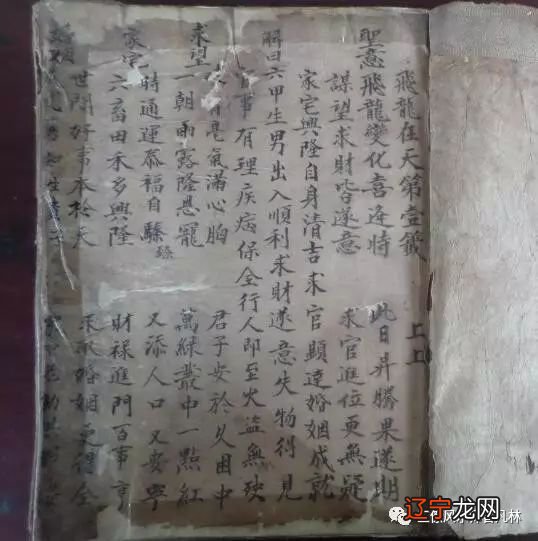 飛龍在天第壹籤 上上
聖意飛龍變化喜逢時 此日昇騰果遂期
謀望求財皆遂意 求官進位更無疑
家宅興隆自身清吉求官顯達婚姻成就
解曰六甲生男出入順利求財遂意失物得見
官事有理疾病保全行人即至火盜無殃
亨氣滿心胸 君子安於久困中
求望一朝雨露隆恩寵 萬綠叢中一點紅
時通運泰福自臻 又添人口又安寧
臻
家宅六畜田禾多興隆 財祿進門百事亨
世間好事本於天 婚姻更得全
辽宁龙网